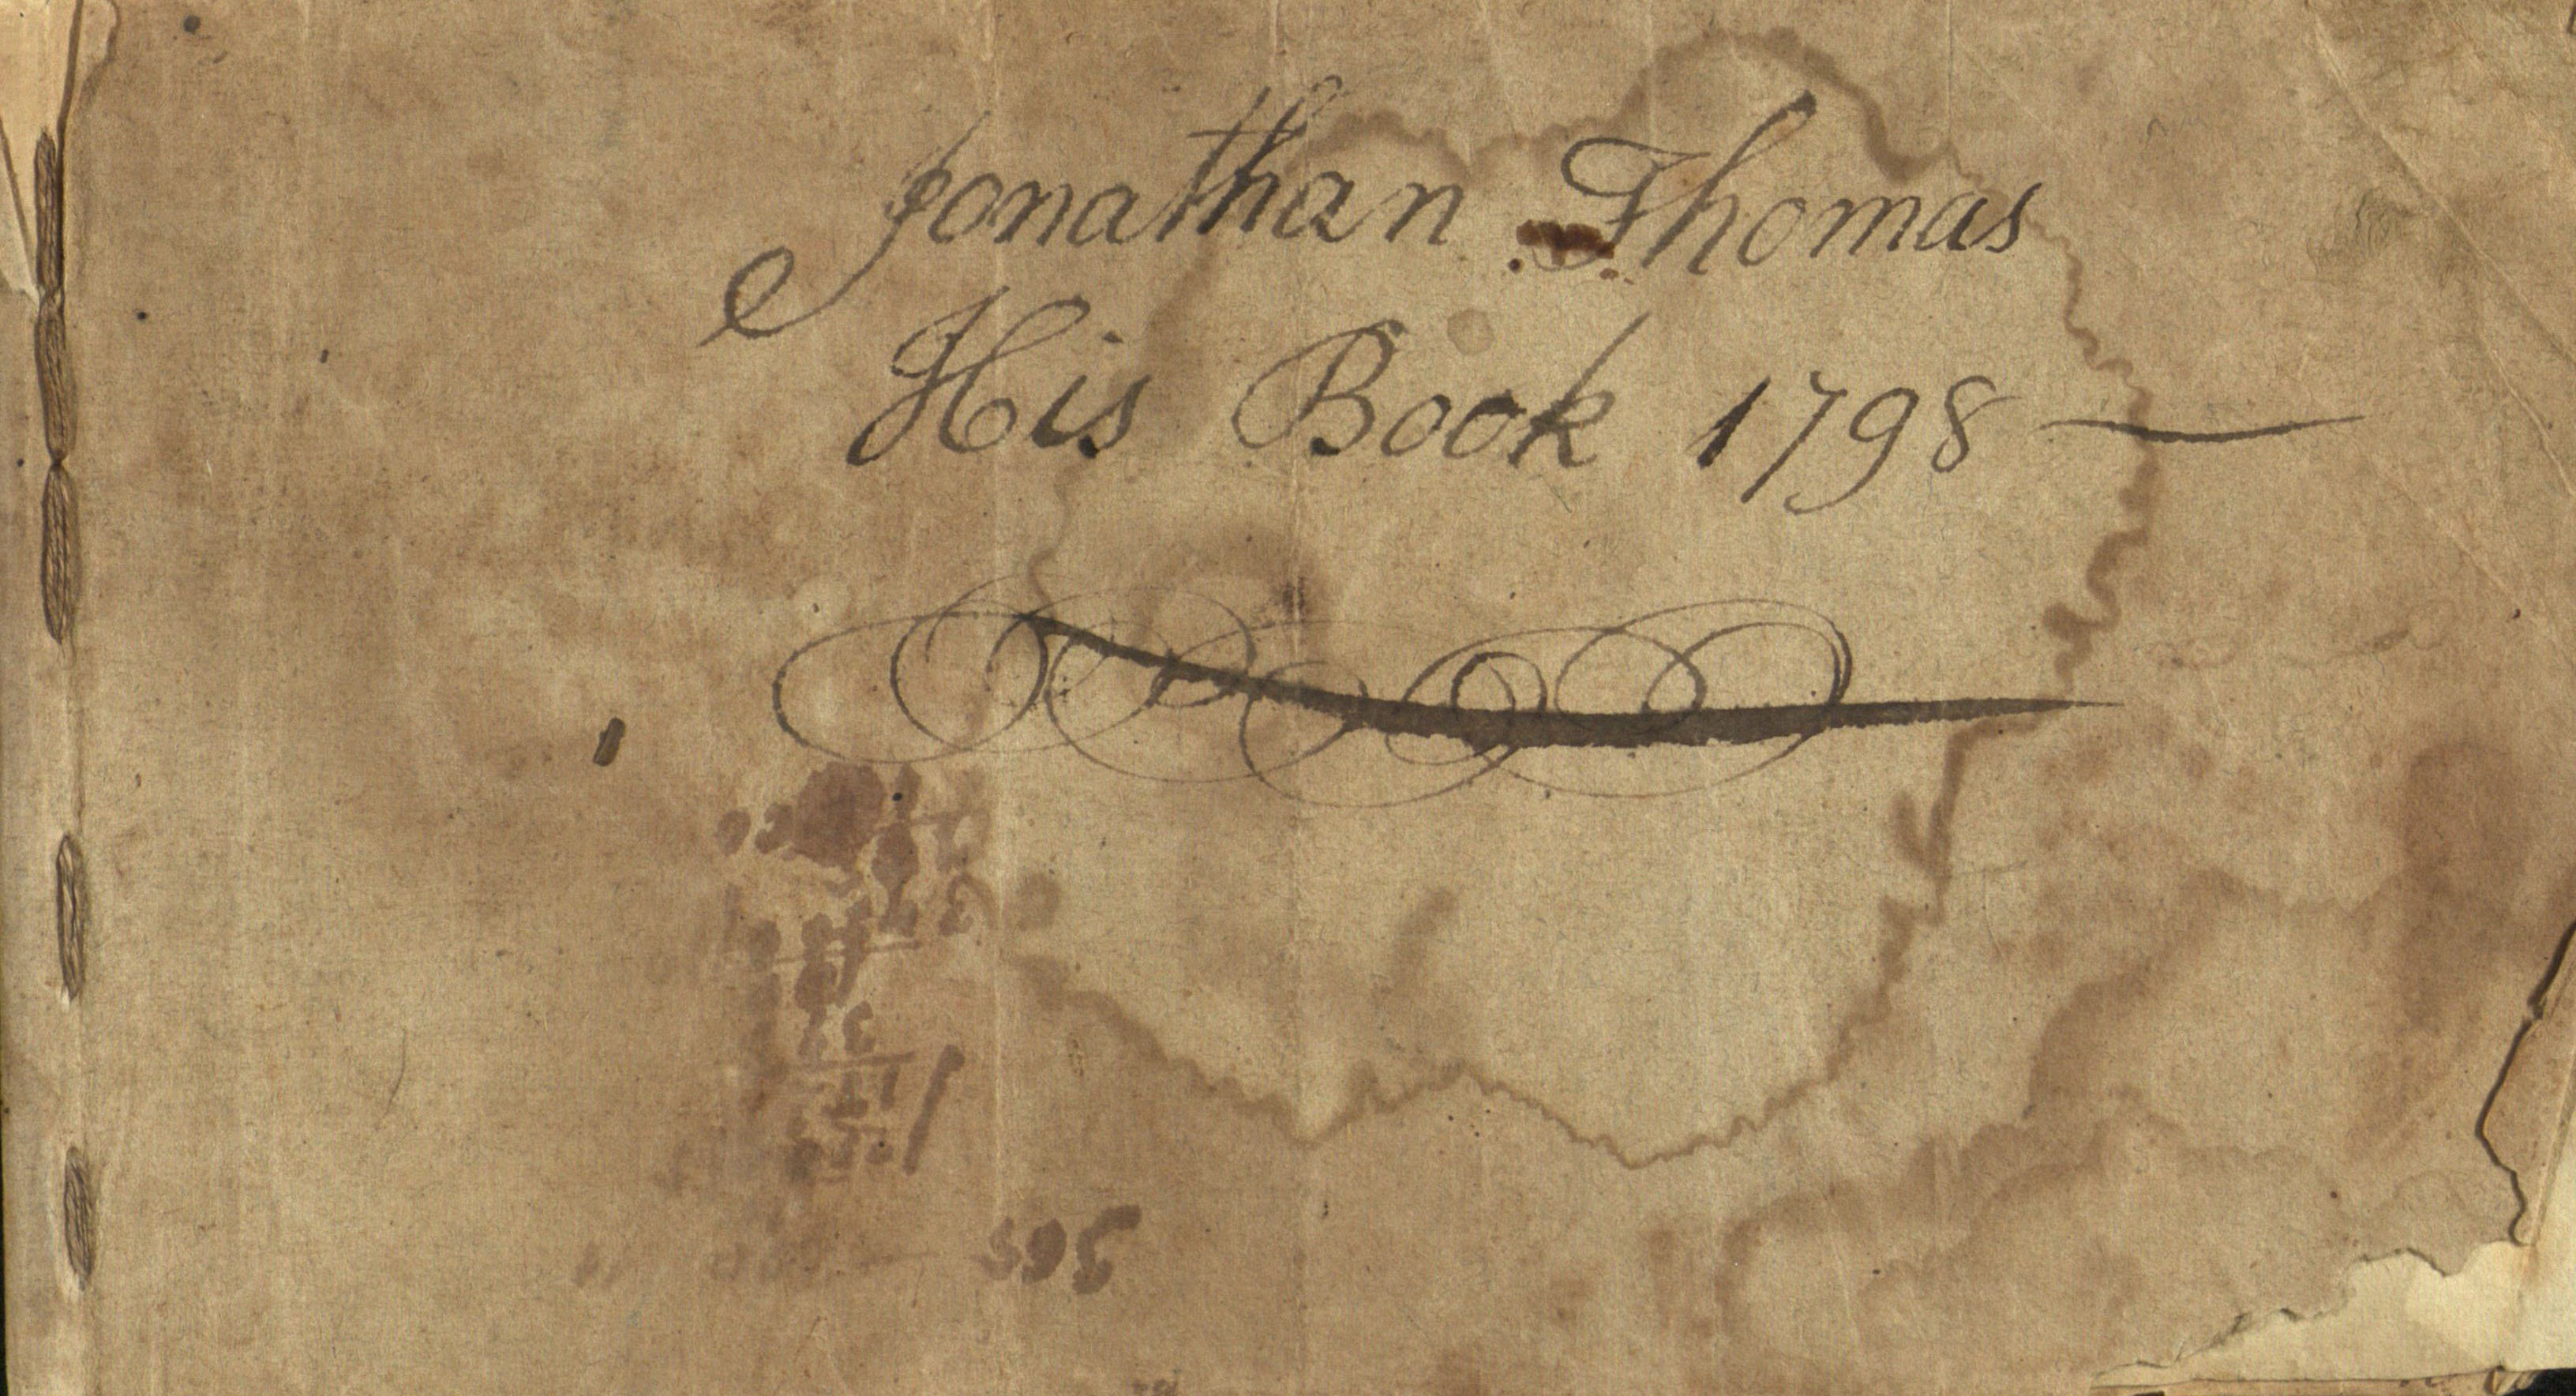 Jonathan Thomas
His Book 1798